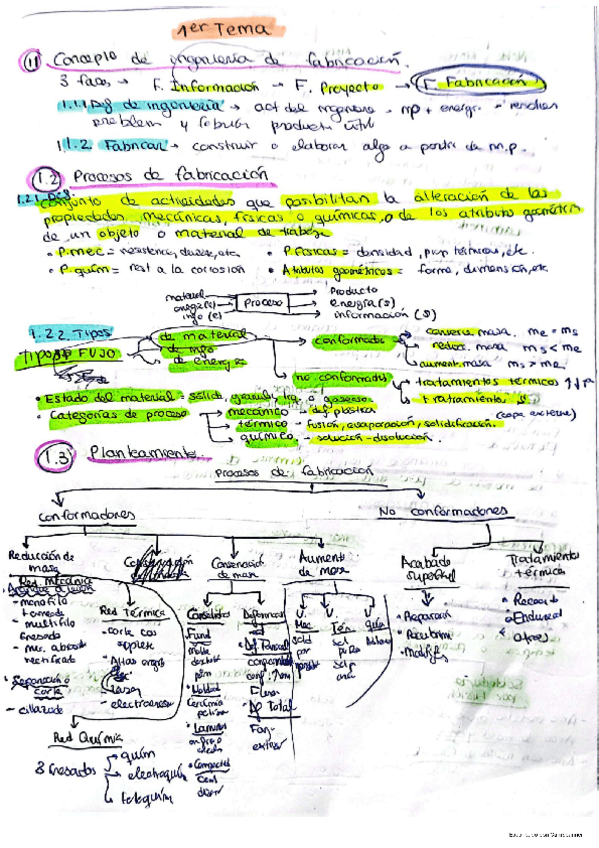 1er Tema
1.1 Concepto de ingeniería de fabricación.
3 fases → F. Información → F. Proyecto → F. Fabricación
1.1.1 Def de ingeniería → act del ingeniero - mp + energía - resolver
problem y fabricar producto útil
1.1.2. Fabricar → construir o elaborar algo a partir de m.p.
1.2 Procesos de fabricación
1.2.1 Def.
conjunto de actividades que posibilitan la alteración de las
propiedades mecánicas, físicas o químicas, o de los atributos geométricos
de un objeto o material de trabajo
• P.mec = resistencia, dureza, etc • P Físicas = densidad, prop térmicas, etc.
• P. quím = rest a la corrosión • Atributos geométricos = forma, dimensión, etc
material
energía(s)
info (e)
Proceso
Producto
energía(s)
información (s)
1.2.2. Tipos
Tipos FUJO
de material
de info
de energía
conformados
conserva masa. me = ms
reduc. masa ms < me
aument. masa ms > me
no conformados
tratamientos térmicos
tratamiento
(capa externa)
• Estado del material = sólido, granular, o gaseoso.
• Categorías de proceso
mecánico - def plástica
térmico - fusión, evaporación, solidificación.
químico. - solución - disolución.
1.3 Planteamiento.
Procesos de fabricación
Conformadores
No conformadores
Reducción de
masa
Conservación
de masa
Aumento
de masa
Acabado
superficial
Tratamiento
térmico
Red. Mecánica
- monofilo
torneado
- multifilo
fresado
- mu. abrasi
rectificado
• Separación o
corte
- cizallado
Red Térmica
- corte con
soplete
- Altas energ
- laser
- electroerosi
Red Química
3 Fresados
quím
electroquím
fotoquím
Consolidar
Fund
molde
• Moldeo
Cerámica
• Laminar
• Compactar
Deformac
• Def. Parcial
• Def Total
For-
extrus
U.
Mec
sold
por
U.
Tér
U.
Quím
• Reparación
• Recubrim
• Modific
• Recocido
• Endurecid
• otros